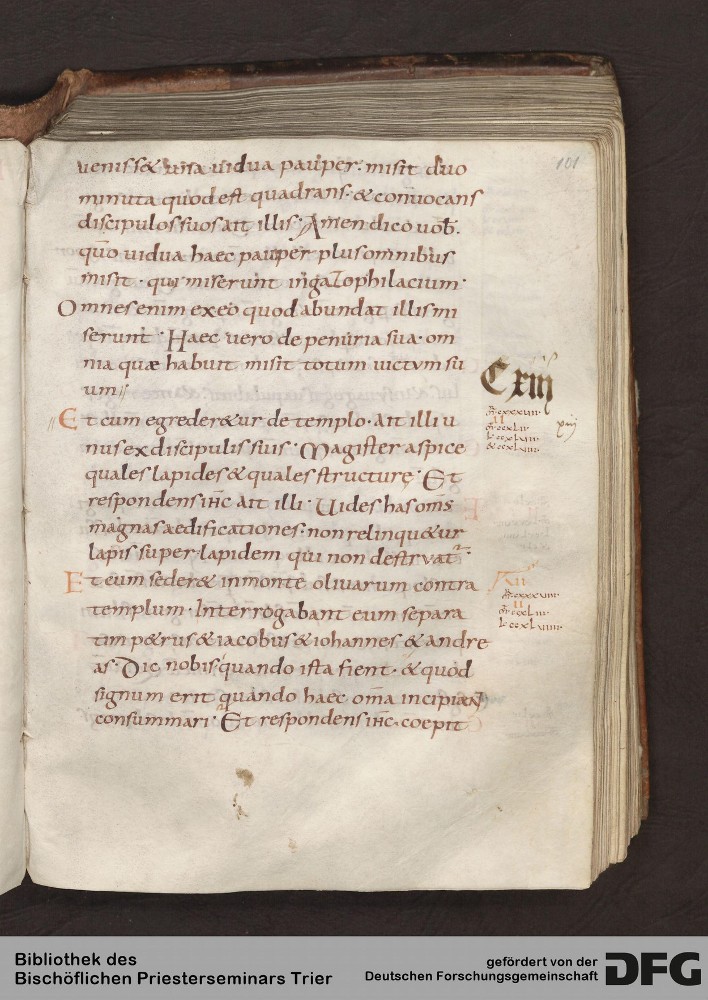 101
uenisset una uidua pauper. misit duo
minuta quod est quadrans. & conuocans
discipulos suos ait illis. Amen dico uob.
quō uidua haec pauper plus omnibus
misit. qui miserunt in gazophilacium.
Omnes enim ex eo quod abundat illis mi
serunt. Haec uero de penuria sua. om
nia quæ habuit misit totum uictum su
um
Cxiii
Et cum egrederetur de templo. Ait illi u
nus ex discipulis suis. Magister aspice
quales lapides & quales structurę. Et
respondens ihc ait illi. Uides has oms
magnas aedificationes. non relinquetur
lapis super lapidem qui non destruat
Et cum sederet in monte oliuarum contra
templum. Interrogabant eum separa
tim petrus & iacobus & iohannes & andre
as. Dic nobis quando ista fient. & quod
signum erit quando haec oma incipiant
consummari. Et respondens ihc coepit
Bibliothek des
Bischöflichen Priesterseminars Trier
gefördert von der
Deutschen Forschungsgemeinschaft
DFG